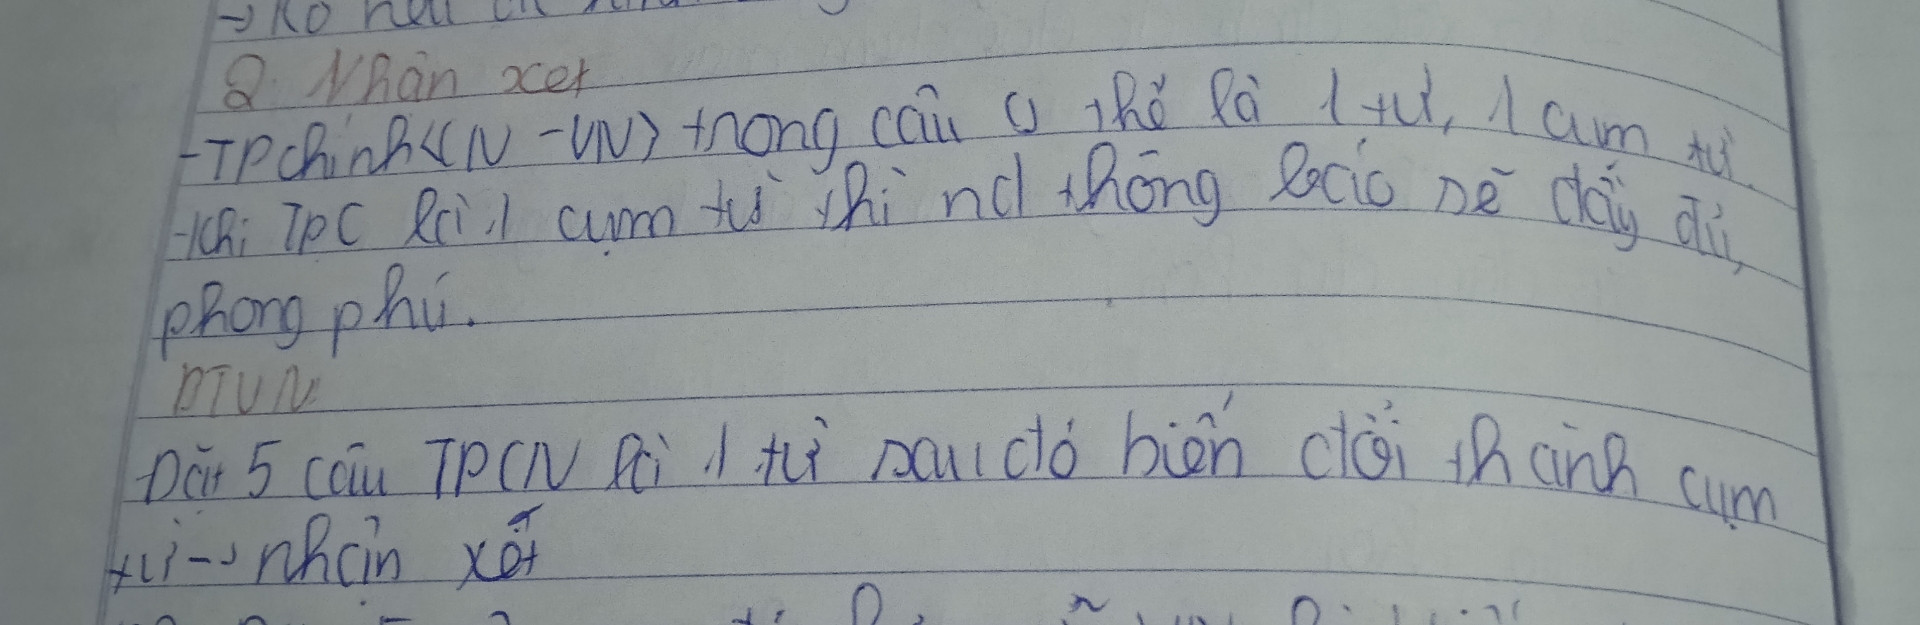 2. Nhận xét
-TP chính (CN - VN) trong câu có thể là 1 từ, 1 cụm từ.
-Khi TPC là 1 cụm từ thì nd thông báo sẽ đầy đủ,
phong phú.
BTVN
Đặt 5 câu TPCN là 1 từ sau đó biến đổi thành cụm
từ -> nhận xét